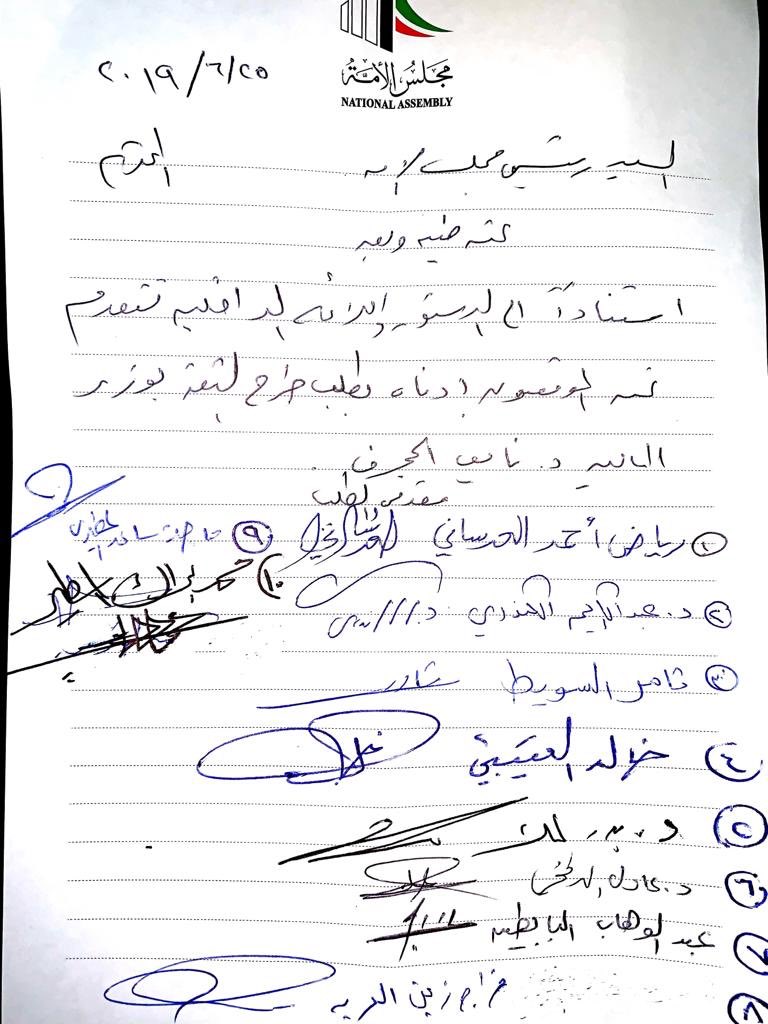 ٢٠١٩/٦/٢٥
مجلس الأمة
NATIONAL ASSEMBLY
السيد رئيس مجلس الأمة المحترم
تحية طيبة وبعد
استناداً الى الدستور واللائحة الداخلية نتقدم
نحن الموقعون ادناه بطلب طرح الثقة بوزير
المالية د. نايف الحجرف.
مقدمي الطلب
① رياض أحمد العدساني
② د. عبدالكريم الكندري
③ ثامر السويط
④ خالد العتيبي
⑤ د. بدر الملا
⑥ د. عادل الدمخي
٧ عبدالوهاب البابطين
٨ فراج زين العربيد
⑨
١٠)